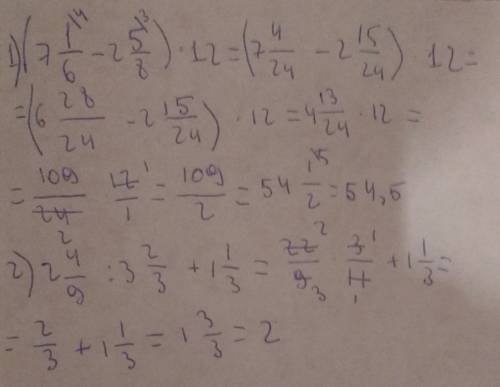 1) (7 1/6 ⁴ - 2 5/8 ³) · 12 = (7 4/24 - 2 15/24) 12 =
= (6 28/24 - 2 15/24) · 12 = 4 13/24 · 12 =
= 109/24 ₂ 12/1 ¹ = 109/2 = 54 1/2 ⁵ = 54,5
2) 2 4/9 : 3 2/3 + 1 1/3 = 22/9 ²₃ 3/11 ¹₁ + 1 1/3 =
= 2/3 + 1 1/3 = 1 3/3 = 2